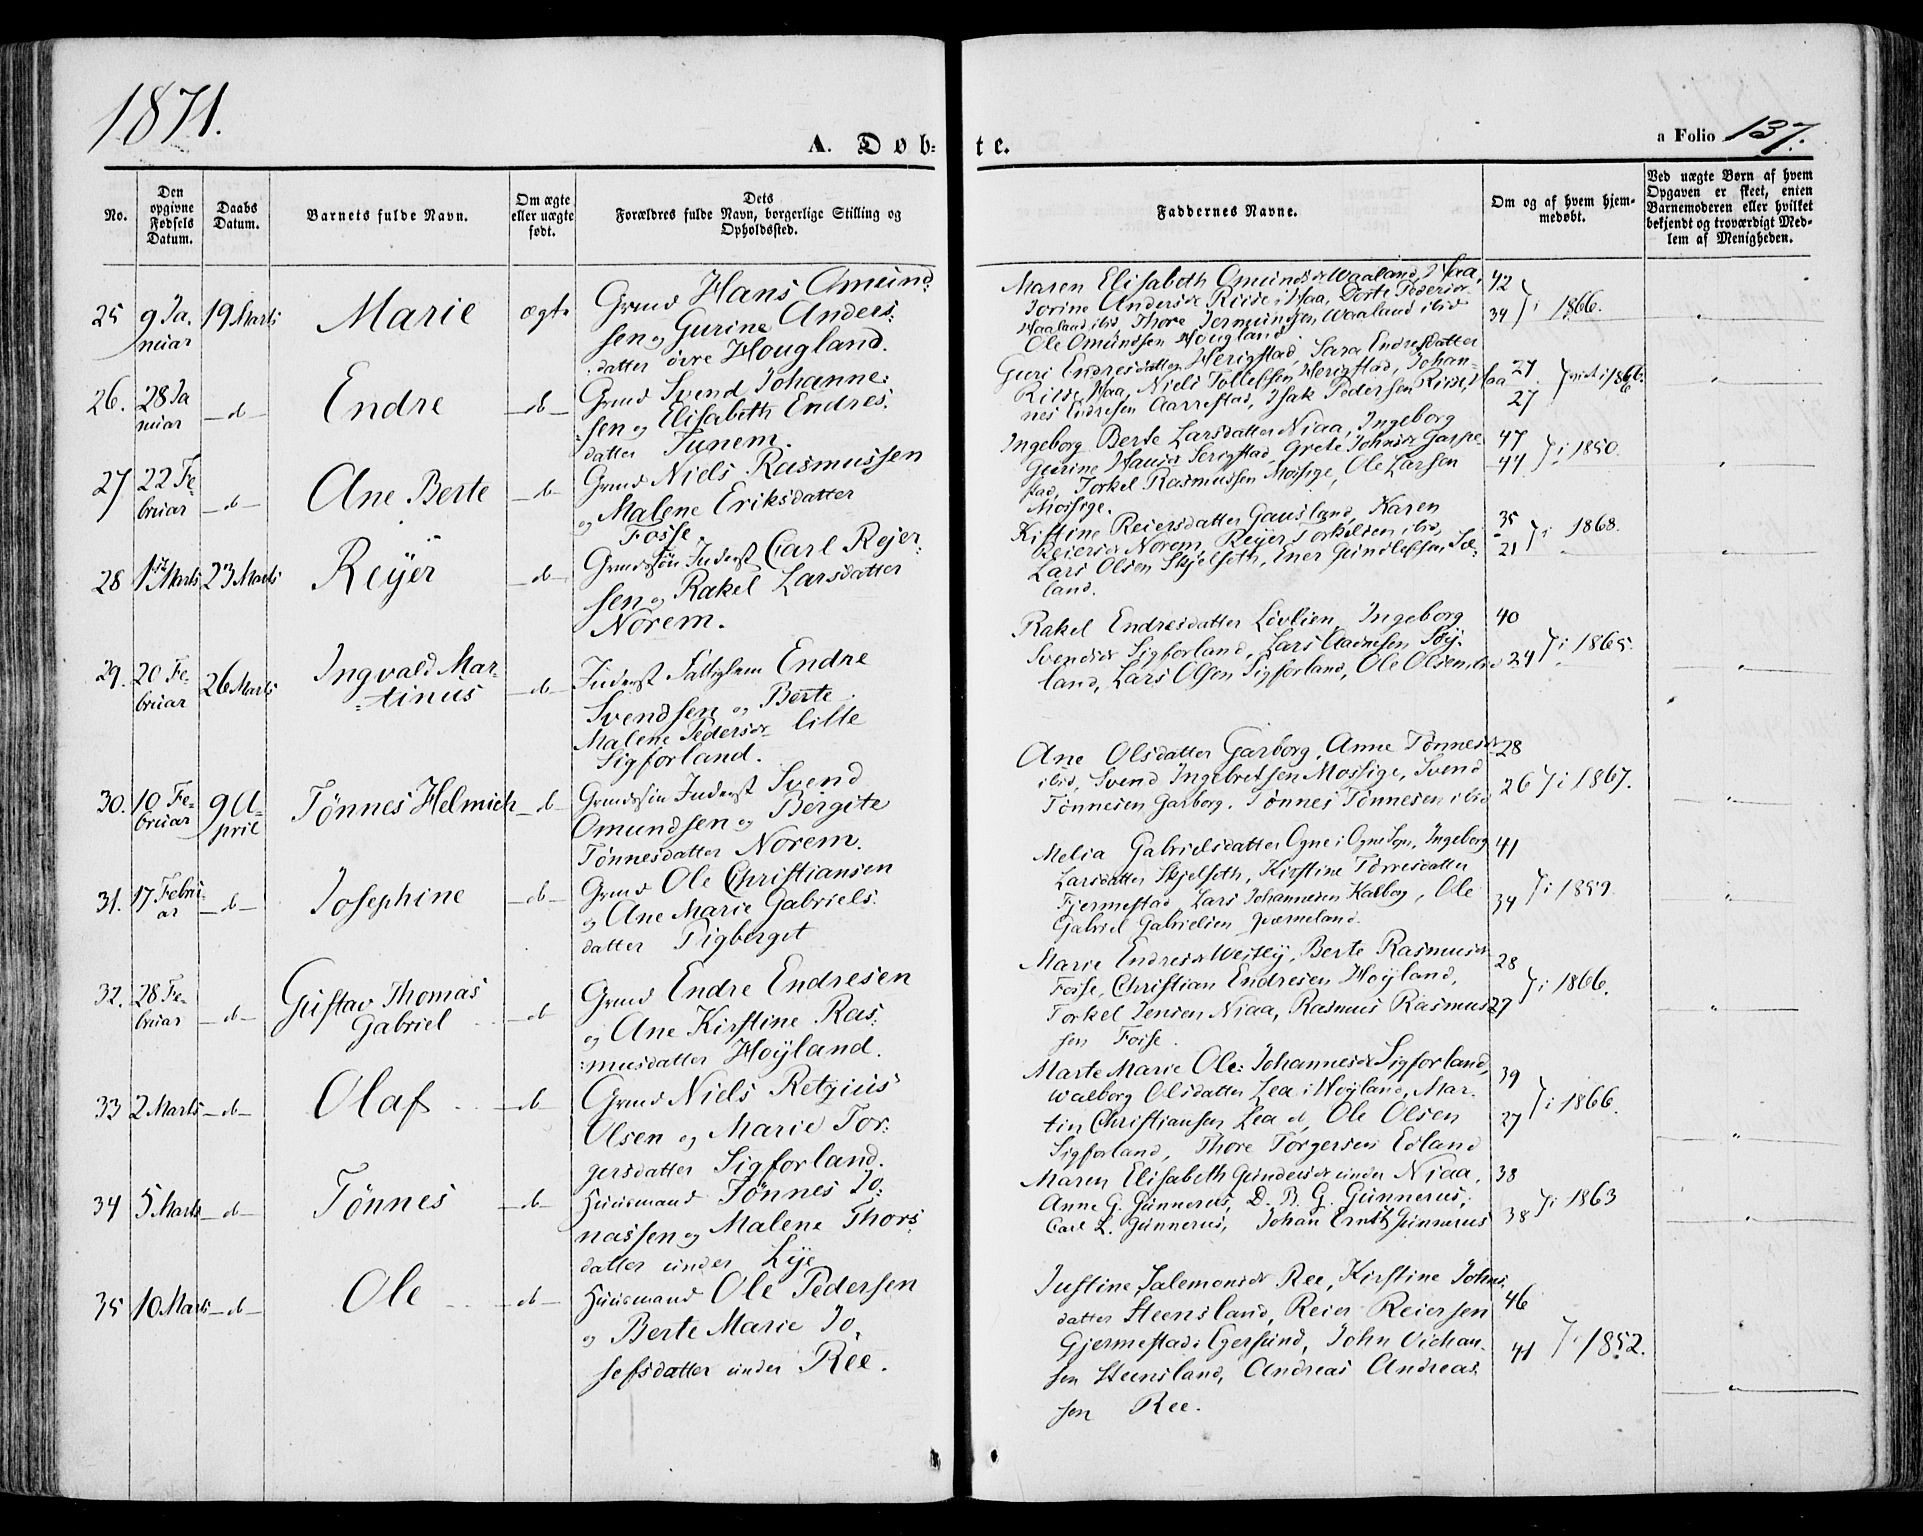 1871.
A. Døb-te.
a Folio 137.
No.
Den opgivne Fødsels Datum.
Daabs Datum.
Barnets fulde Navn.
Om ægte eller uægte født.
Dets Forældres fulde Navn, borgerlige Stilling og Opholdssted.
Faddernes Navne.
Om og af hvem hjem-
medøbt.
Ved uægte Børn af hvem
Opgaven er skeet, enten
Barnemoderen eller hvilket
bekjendt og troværdigt Med-
lem af Menigheden.
25 9 Ja-
nuar
19 Marts
Marie
ægte
Grmd Hans Omund-
sen og Gurine Anders-
datter øvre Hougland.
Maren Elisabeth Omundsdr Waaland, Haa,
Jorine Andersdr Risse i Haa, Dorte Pedersdr
Haaland ibid, Thore Jermundsen Waaland ibid
Ole Omundsen Hougland
42
34 } i 1866.
26. 28 Ja
nuar
-d-
Endre
-d-
Grmd Svend Johanne-
sen og Elisabeth Endres-
datter Tunem.
Guri Endresdatter Herigstad, Sara Endresdatter
Risse, Haa, Niels Tollefsen Herigstad, Johan-
nes Endresen Aarrestad, Isak Pedersen Risse, Haa
27
27
} i 1866.
27 22 Fe-
bruar
-d-
Ane Berte
-d-
Grmd Niels Rasmussen
og Malene Eriksdatter
Fosse.
Ingeborg Berte Larsdatter Niaa, Ingeborg
Gurine Hansdr Serigstad, Grete Johnsdr Garpe-
stad, Torkel Rasmussen Mossige, Ole Larsen
Mossige.
47
44 } i 1850.
28 1ste Marts
23 Marts
Reÿer
-d-
Grmdssøn Inderst Carl Rejer-
sen og Rakel Larsdatter
Norem.
Kistine Reiersdatter Gausland, Karen
Reiersdr Norem, Reÿer Torkelsen ibid,
Lars Olsen Skjelseth, Ener Gundlefsen Sæ-
land.
35
21 } i 1868.
29. 20 Fe-
bruar
26 Marts
Ingvald Mar-
tinus
-d-
Inderst Fattiglem Endre
Svendsen og Berte
Malene Pedersdr lille
Sigforland.
Rakel Endresdatter Løvlien, Ingeborg
Svendsdr Sigforland, Lars Aadnesen Søÿ-
land, Lars Olsen Sigforland, Ole Olsen ibid
40
24 } i 1865.
30. 10 Fe-
bruar
9 A-
pril
Tønnes Helmich
-d-
Grmdssøn Inderst Svend
Omundsen og Bergite
Tønnesdatter Norem.
Ane Olsdatter Garborg, Anne Tønnesdr
ibid, Svend Ingebretsen Mossige, Svend
Tønnesen Garborg, Tønnes Tønnesen ibid
28
26 } i 1867.
31. 17 Febru-
ar
-d-
Josephine
-d-
Grmd Ole Christiansen
og Ane Marie Gabriels-
datter Tigberget
Melia Gabrielsdatter Ogne i Ogne Sogn, Ingeborg
Larsdatter Skjelseth, Kirstine Torresdatter
Fjermestad, Lars Johannesen Kalberg, Ole
Gabriel Gabrielsen Kværneland.
41
34 } i 1859.
32. 28 Fe-
bruar
-d-
Gustav Thomas
Gabriel
-d-
Grmd Endre Endresen
og Ane Kirstine Ras-
musdatter Hoÿland.
Marie Endresdr Westly, Berte Rasmusdr
Fosse, Christian Endresen Hoÿland,
Torkel Jensen Niaa, Rasmus Rasmus-
sen Fosse.
28
29
} i 1866.
33 2 Marts
-d-
Olaf
-d-
Grmd Niels Retzius
Olsen og Marie Tor-
gersdatter Sigforland.
Marte Marie Ole Johannesdr Sigforland,
Walborg Olsdatter Lea i Hoÿland, Mar-
tin Christiansen Lea d, Ole Olsen
Sigforland, Thore Torgersen Edland
39
27 } i 1866.
34 5 Marts
-d-
Tønnes
-d-
Huusmand Tønnes Jo-
nassen og Malene Thors-
datter under Lÿe
Maren Elisabeth Gundersdr under Niaa,
Anne G. Gunnerus, D. B. G. Gunnerus,
Carl L. Gunnerus, Johan Ernst Gunnerus
38
38 } i 1863
35 10 Marts
-d-
Ole
-d-
Huusmand Ole Pedersen
og Berte Marie Jo-
sefsdatter under Ree.
Justine Salemonsdr Ree, Kirstine Johns-
datter Steensland, Reier Reiersen
Gjermestad i Egersund, John Vichan-
sen Steensland, Andreas Andreas-
sen Ree.
46
41 } i 1852.